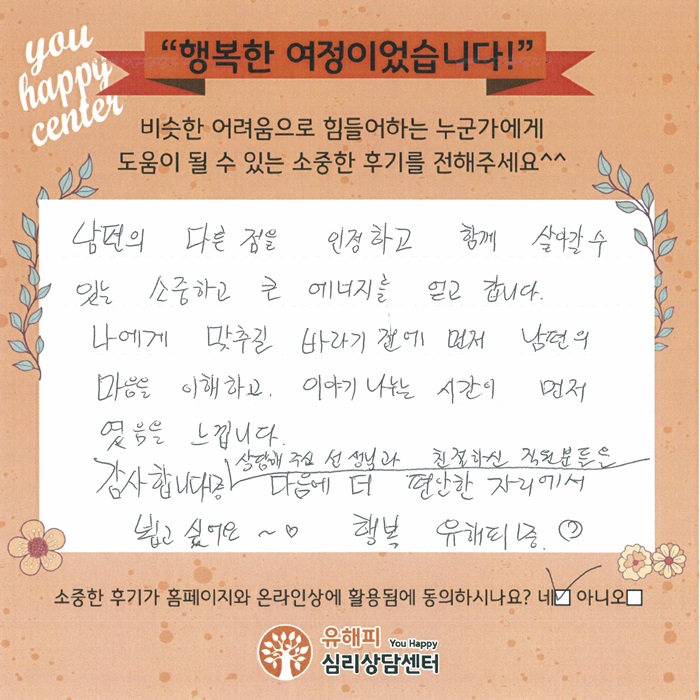 you
happy
center
“행복한 여정이었습니다!”
비슷한 어려움으로 힘들어하는 누군가에게
도움이 될 수 있는 소중한 후기를 전해주세요^^
남편의 다른 점을 인정하고 함께 살아갈 수
있는 소중하고 큰 에너지를 얻고 갑니다.
나에게 맞추길 바라기 전에 먼저 남편의
마음을 이해하고. 이야기 나누는 시간이 먼저
였음을 느낍니다.
상담해 주신 선생님과 친절하신 직원분들은
감사합니다 다음에 더 편안한 자리에서
뵙고 싶어요 ~♡ 행복 유해피
소중한 후기가 홈페이지와 온라인상에 활용됨에 동의하시나요? 네 아니오
유해피 You Happy
심리상담센터